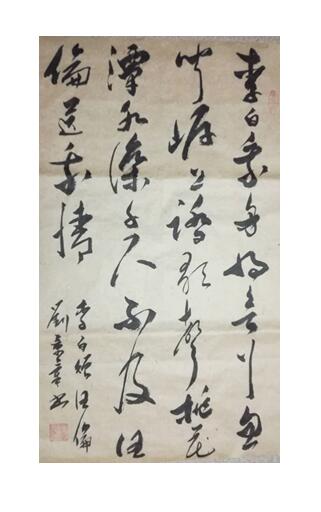 李白乘舟将欲行忽
闻岸上踏歌聲桃花
潭水深千尺不及汪
倫送我情
李白赠汪倫
劉景章书